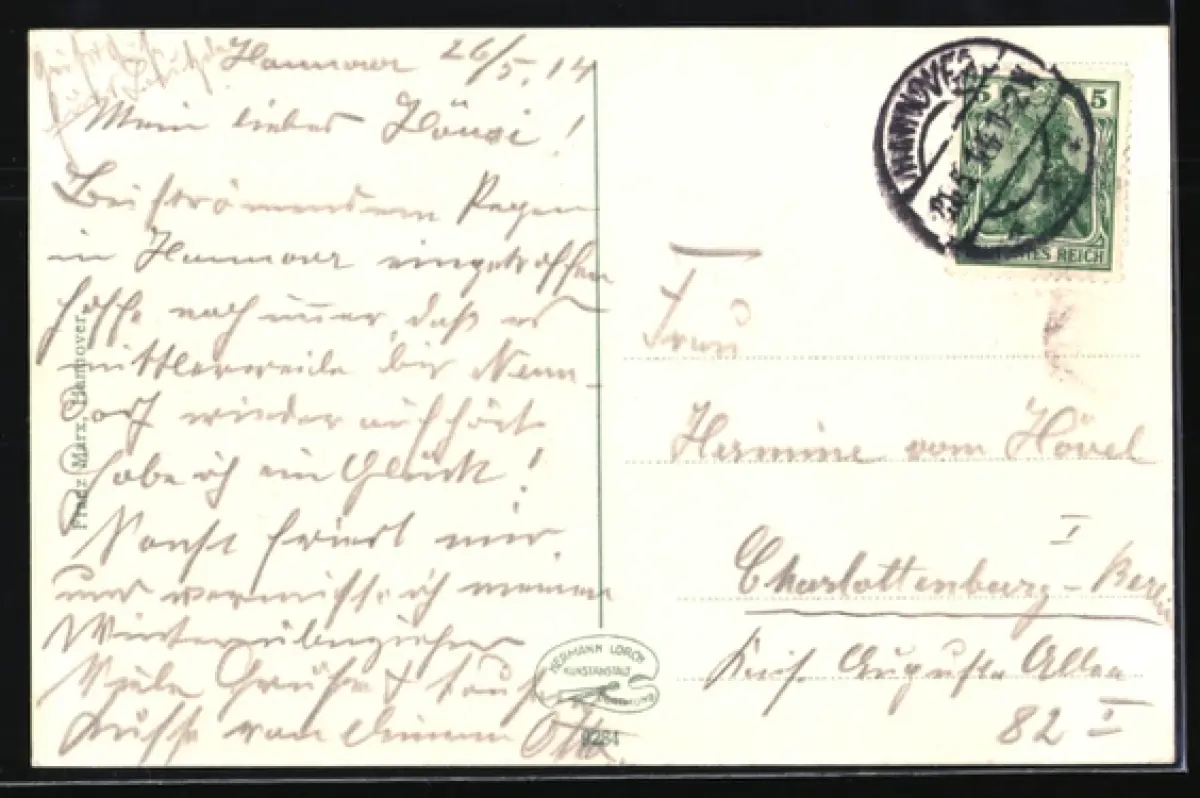 Hannover 26/5. 14
Mein lieber Hönsi!
Bei strömendem Regen
in Hannover eingetroffen
hoffe noch immer, daß es
mittlerweile bis Nenn-
dorf wieder aufhört
habe ich ein Glück!
Sonst friert mir,
und vermisse ich meinen
Winterüberzieher
Viele Grüße & tausend
Küsse von Deinem Otto.
Franz Marx, Hannover.
HERMANN LORCH
KUNSTANSTALT
DORTMUND
9284
HANNOVER
26.5.14
5 5
DEUTSCHES REICH
Frau
Hermine vom Hövel
I
Charlottenburg-Berlin
Kais. Augusta Allee
82 I